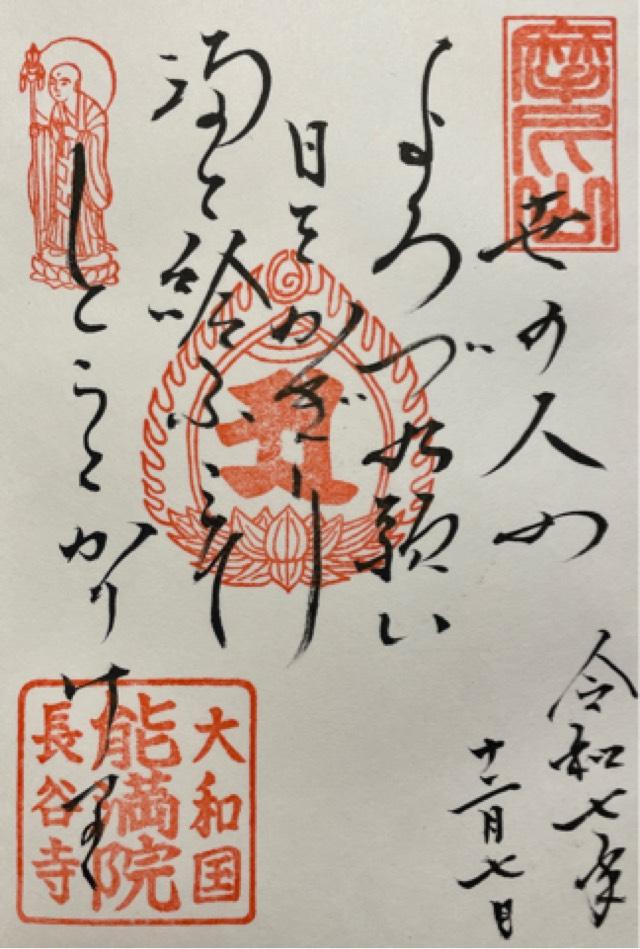 摩尼山
世の人の
よろづの願い
日をかぎり
満て給ふ
とうとかりけ
令和七年
十二月七日
大和国
能満院
長谷寺